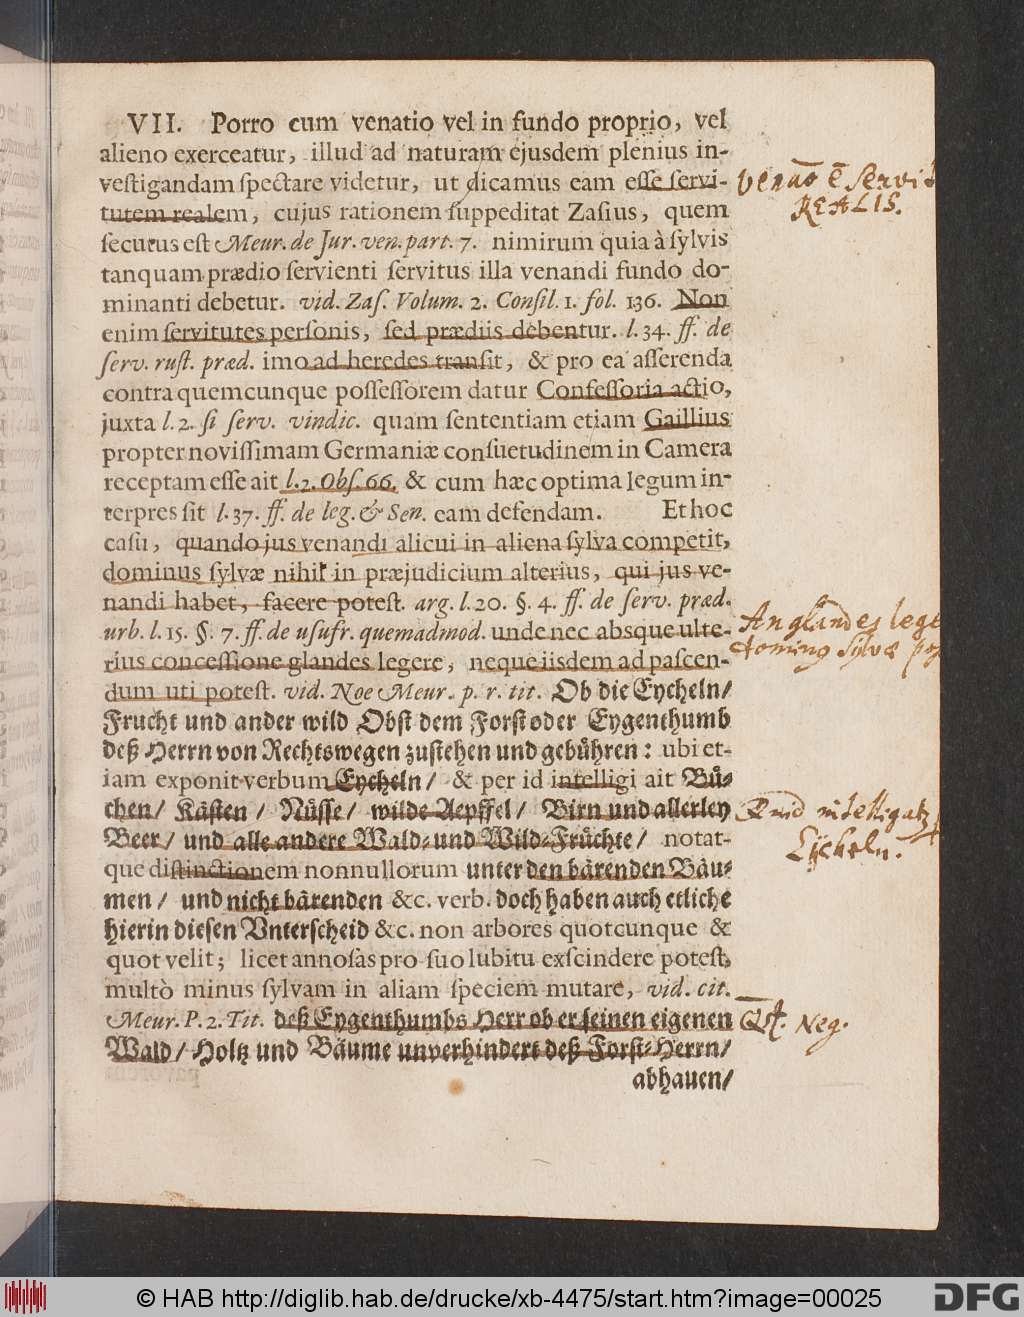 VII. Porro cum venatio vel in fundo proprio, vel
alieno exerceatur, illud ad naturam ejusdem plenius in-
vestigandam spectare videtur, ut dicamus eam esse servi-
tutem realem, cujus rationem suppeditat Zasius, quem
secutus est Meur. de Jur. ven. part. 7. nimirum quia à sylvis
tanquam prædio servienti servitus illa venandi fundo do-
minanti debetur. vid. Zas. Volum. 2. Consil. 1. fol. 136. Non
enim servitutes personis, sed prædiis debentur. l. 34. ff. de
serv. rust. præd. imo ad heredes transit, & pro ea asserenda
contra quemcunque possessorem datur Confessoria actio,
juxta l. 2. si serv. vindic. quam sententiam etiam Gaillius
propter novissimam Germaniæ consuetudinem in Camera
receptam esse ait l. 2. Obs. 66. & cum hæc optima legum in-
terpres sit l. 37. ff. de leg. & Sen. eam defendam. Et hoc
casu, quando jus venandi alicui in aliena sylva competit,
dominus sylvæ nihil in præjudicium alterius, qui jus ve-
nandi habet, facere potest. arg. l. 20. §. 4. ff. de serv. præd.
urb. l. 15. §. 7. ff. de usufr. quemadmod. unde nec absque ulte-
rius concessione glandes legere, neque iisdem ad pascen-
dum uti potest. vid. Noe Meur. p. r. tit. Ob die Eycheln/
Frucht und ander wild Obst dem Forst oder Eygenthumb
deß Herrn von Rechtswegen zustehen und gebühren: ubi et-
iam exponit verbum Eycheln/ & per id intelligi ait Bü-
chen/ Kästen/ Nüsse/ wilde Aepffel/ Birn und allerley
Beer/ und alle andere Wald- und Wild-Früchte/ notat-
que distinctionem nonnullorum unter den bärenden Bäu-
men/ und nicht bärenden &c. verb. doch haben auch etliche
hierin diesen Vnterscheid &c. non arbores quotcunque &
quot velit; licet annosas pro suo lubitu exscindere potest,
multò minus sylvam in aliam speciem mutare, vid. cit.
Meur. P. 2. Tit. deß Eygenthumbs Herr ob er seinen eigenen
Wald/ Holtz und Bäume unverhindert deß Forst-Herrn/
abhauen/
Servit
REALIS.
An glandes lege
dominus sylvæ
Quid intelligatz
Eicheln.
Neg.
© HAB http://diglib.hab.de/drucke/xb-4475/start.htm?image=00025
DFG